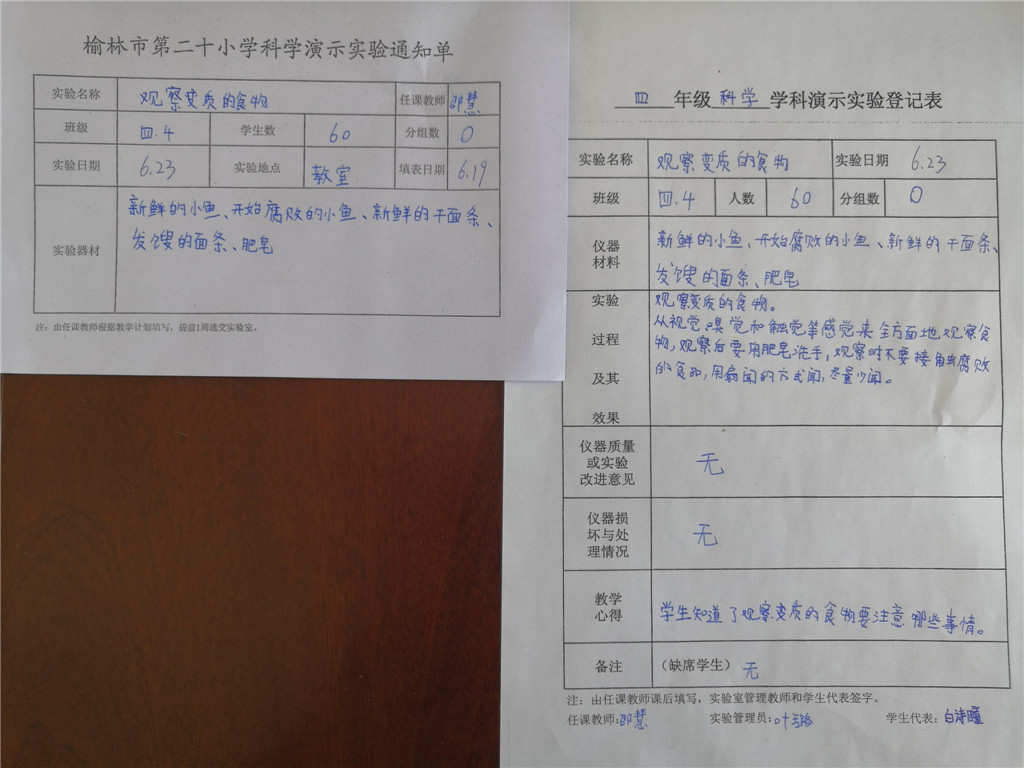 榆林市第二十小学科学演示实验通知单
实验名称 观察变质的食物 任课教师 邵慧
班级 四.4 学生数 60 分组数 0
实验日期 6.23 实验地点 教室 填表日期 6.19
实验器材 新鲜的小鱼、开始腐败的小鱼、新鲜的干面条、
发馊的面条、肥皂
注：由任课教师根据教学计划填写，提前1周送交实验室。
四 年级 科学 学科演示实验登记表
实验名称 观察变质的食物 实验日期 6.23
班级 四.4 人数 60 分组数 0
仪器
材料
新鲜的小鱼、开始腐败的小鱼、新鲜的干面条、
发馊的面条、肥皂
实验
过程
及其
效果
观察变质的食物。
从视觉嗅觉和触觉等感觉来全方面地观察食
物，观察后要用肥皂洗手，观察时不要接触腐败
的食品，用扇闻的方式闻，尽量少闻。
仪器质量
或实验
改进意见
无
仪器损
坏与处
理情况
无
教学
心得
学生知道了观察变质的食物要注意哪些事情。
备注 （缺席学生） 无
注：由任课教师课后填写，实验室管理教师和学生代表签字。
任课教师:邵慧 实验管理员: 学生代表: